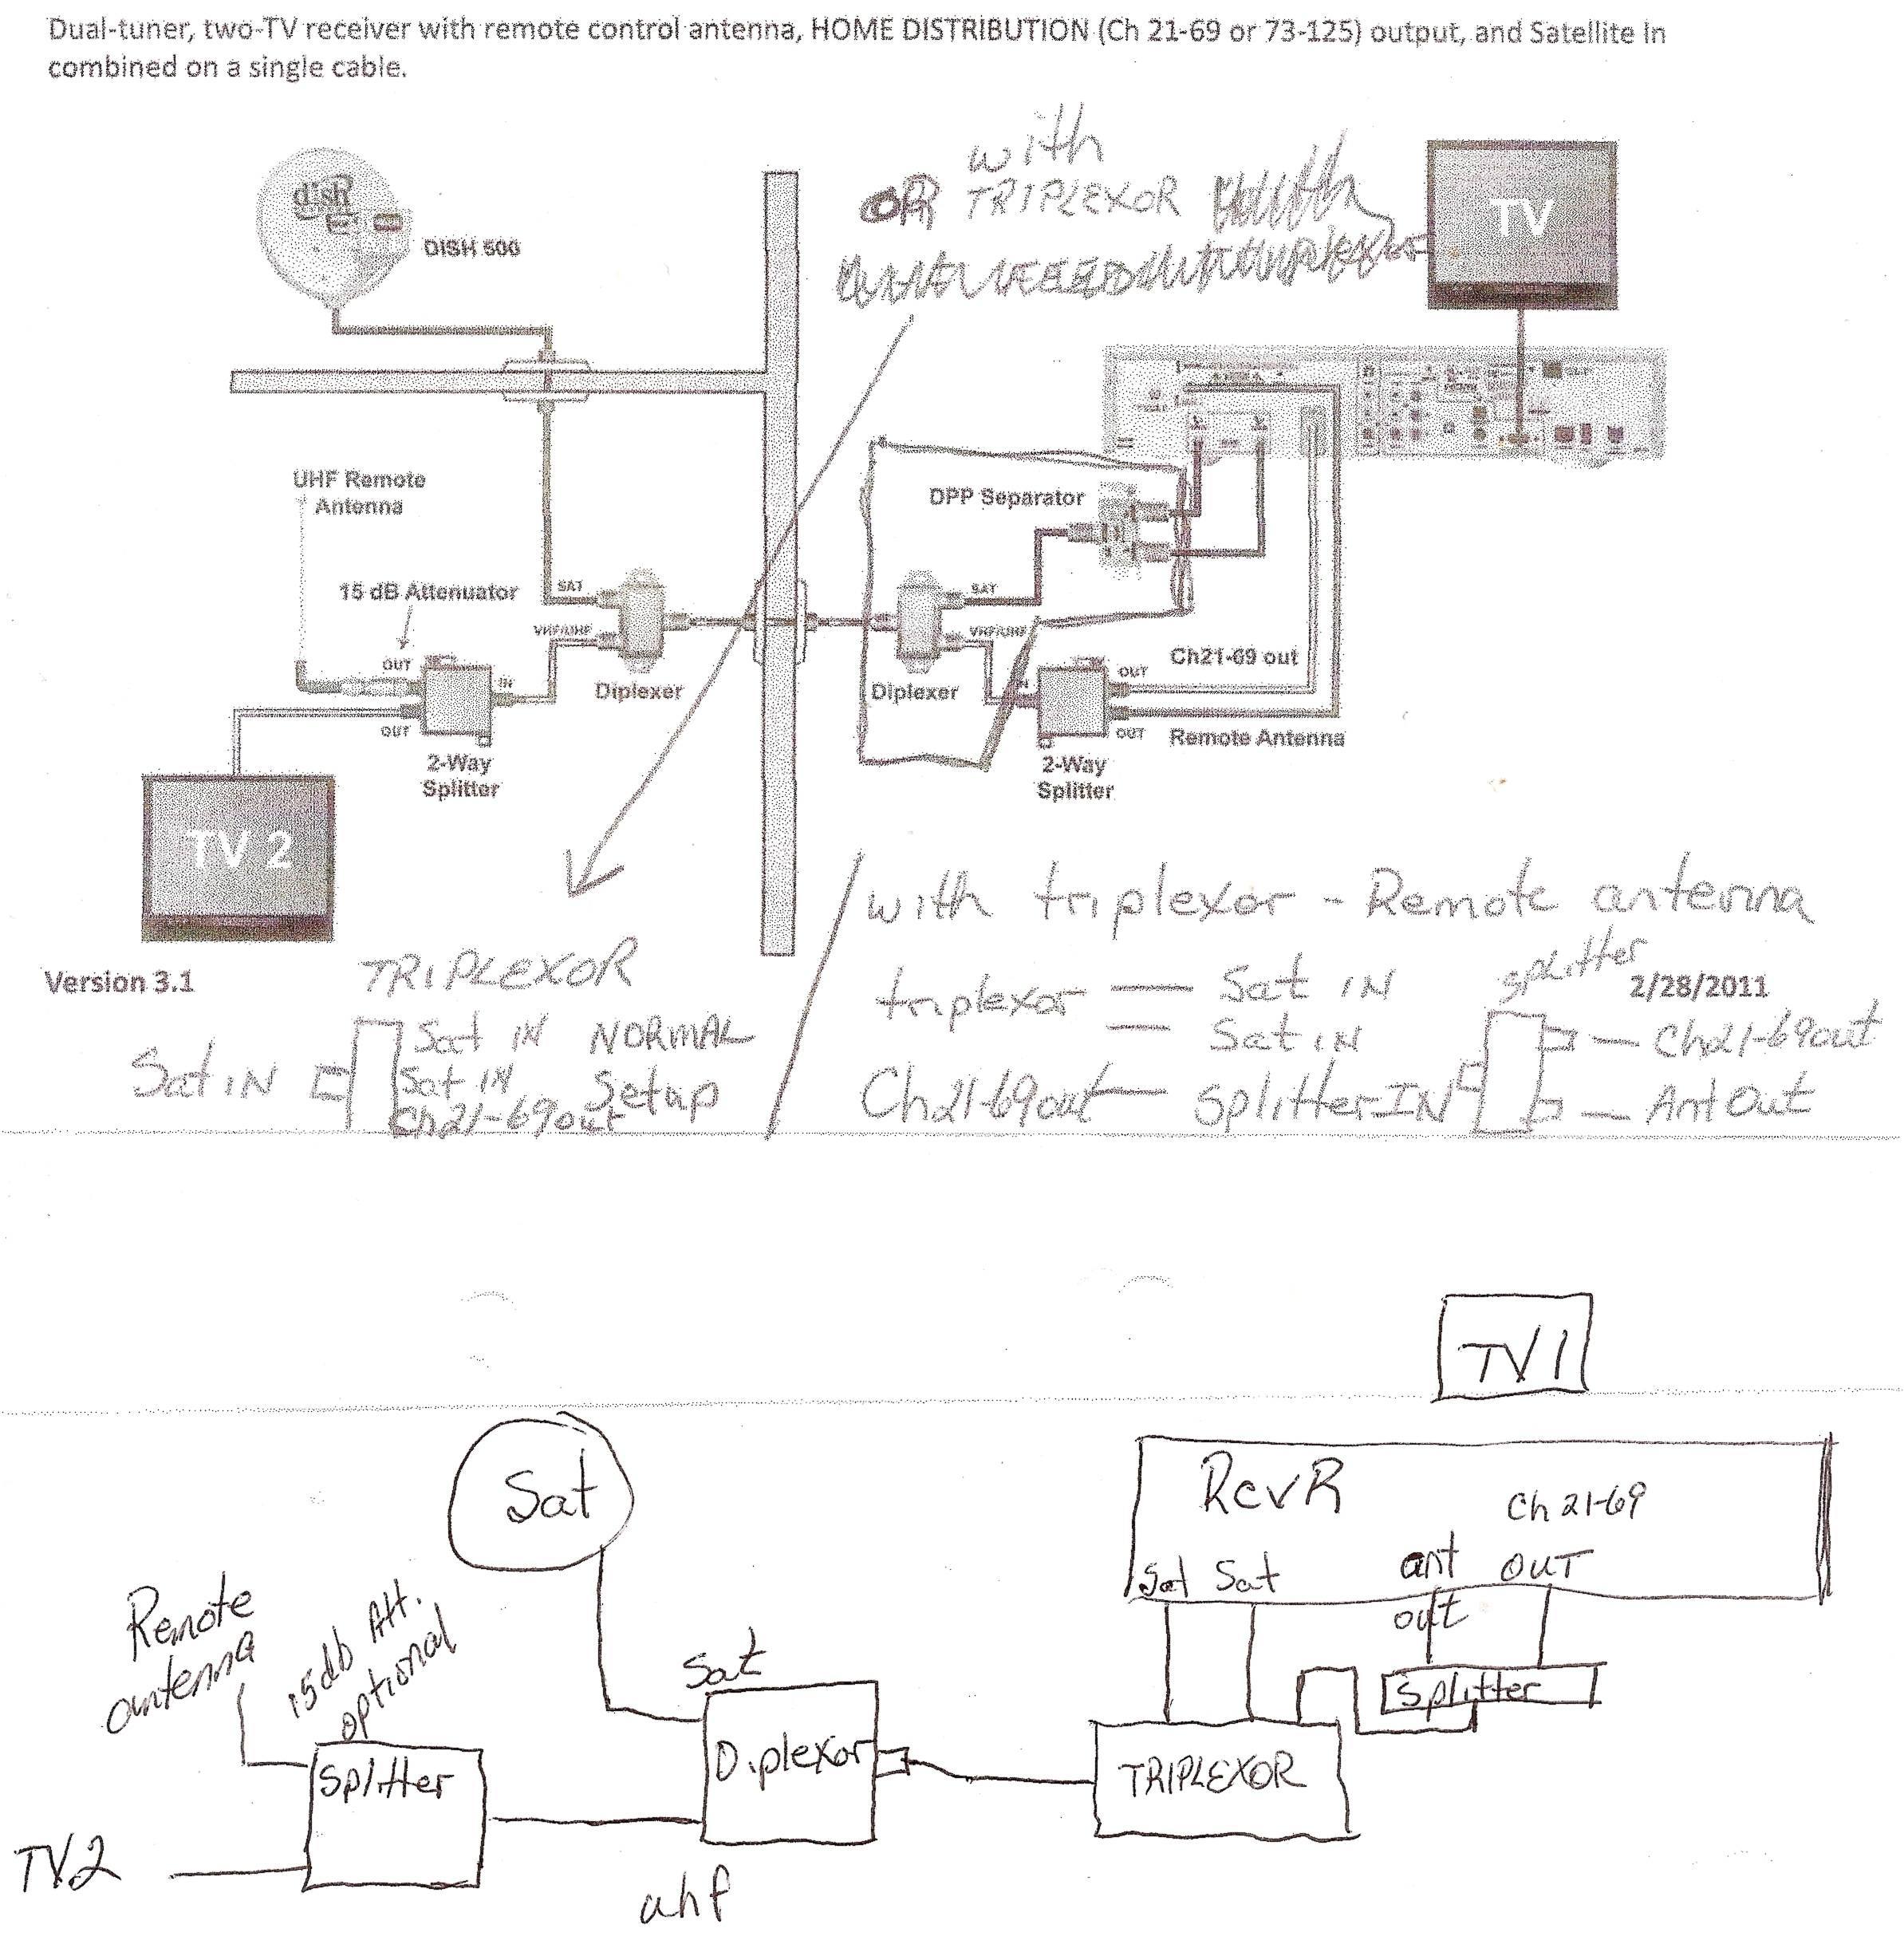 Dual-tuner, two-TV receiver with remote control antenna, HOME DISTRIBUTION (Ch 21-69 or 73-125) output, and Satellite In
combined on a single cable.
with
OR TRIPLEXOR
dish
DISH 500
TV
UHF Remote
Antenna
DPP Separator
15 dB Attenuator
SAT
VHF/UHF
SAT
VHF/UHF
OUT
IN
OUT
Diplexer
Diplexer
IN
OUT
OUT
Ch21-69 out
Remote Antenna
2-Way
Splitter
2-Way
Splitter
TV 2
with triplexor - Remote antenna
Version 3.1
TRIPLEXOR
triplexor — Sat IN
— Sat IN
splitter
2/28/2011
Sat IN
Sat IN NORMAL
Sat IN Setup
Ch21-69out
Ch21-69out — Splitter IN
— Ch21-69out
— Ant Out
TV1
Sat
RcvR
Ch 21-69
Sat Sat ant OUT
out
Remote
antenna
15db Att.
optional
Sat
Splitter
Splitter
Diplexor
TRIPLEXOR
TV2
uhf